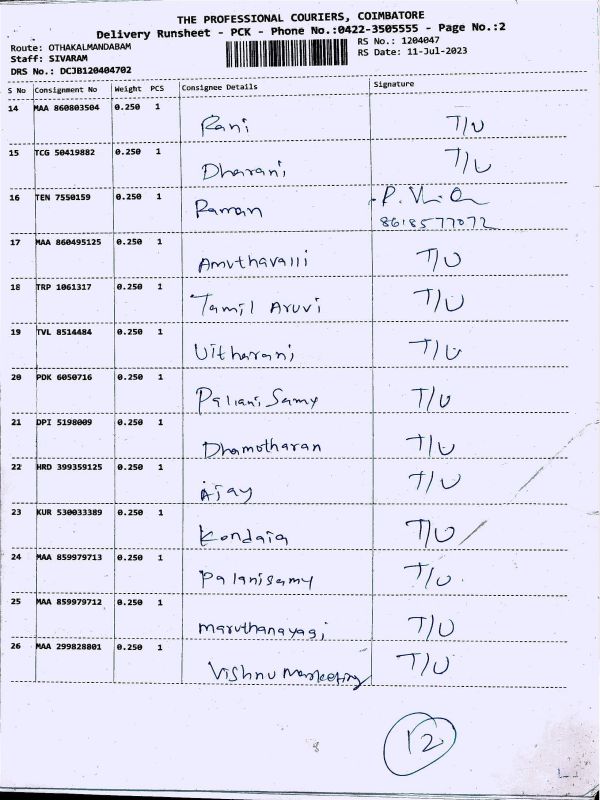 THE PROFESSIONAL COURIERS, COIMBATORE
Delivery Runsheet - PCK - Phone No.:0422-3505555 - Page No.:2
Route: OTHAKALMANDABAM RS No.: 1204047
Staff: SIVARAM RS Date: 11-Jul-2023
DRS No.: DCJB120404702
S No Consignment No Weight PCS Consignee Details Signature
14 MAA 860803504 0.250 1 Rani T/U
15 TCG 50419882 0.250 1 Dharani T/U
16 TEN 7550159 0.250 1 Raman
8618577072
17 MAA 860495125 0.250 1 Amuthavalli T/U
18 TRP 1061317 0.250 1 Tamil Aruvi T/U
19 TVL 8514484 0.250 1 Uitharani T/U
20 PDK 6050716 0.250 1 Palani Samy T/U
21 DPI 5198009 0.250 1 Dhamotharan T/U
22 HRD 399359125 0.250 1 Ajay T/U
23 KUR 530033389 0.250 1 Kondaia T/U
24 MAA 859979713 0.250 1 Palanisamy T/U
25 MAA 859979712 0.250 1 maruthanayagi T/U
26 MAA 299828801 0.250 1 Vishnu Marketing T/U
12